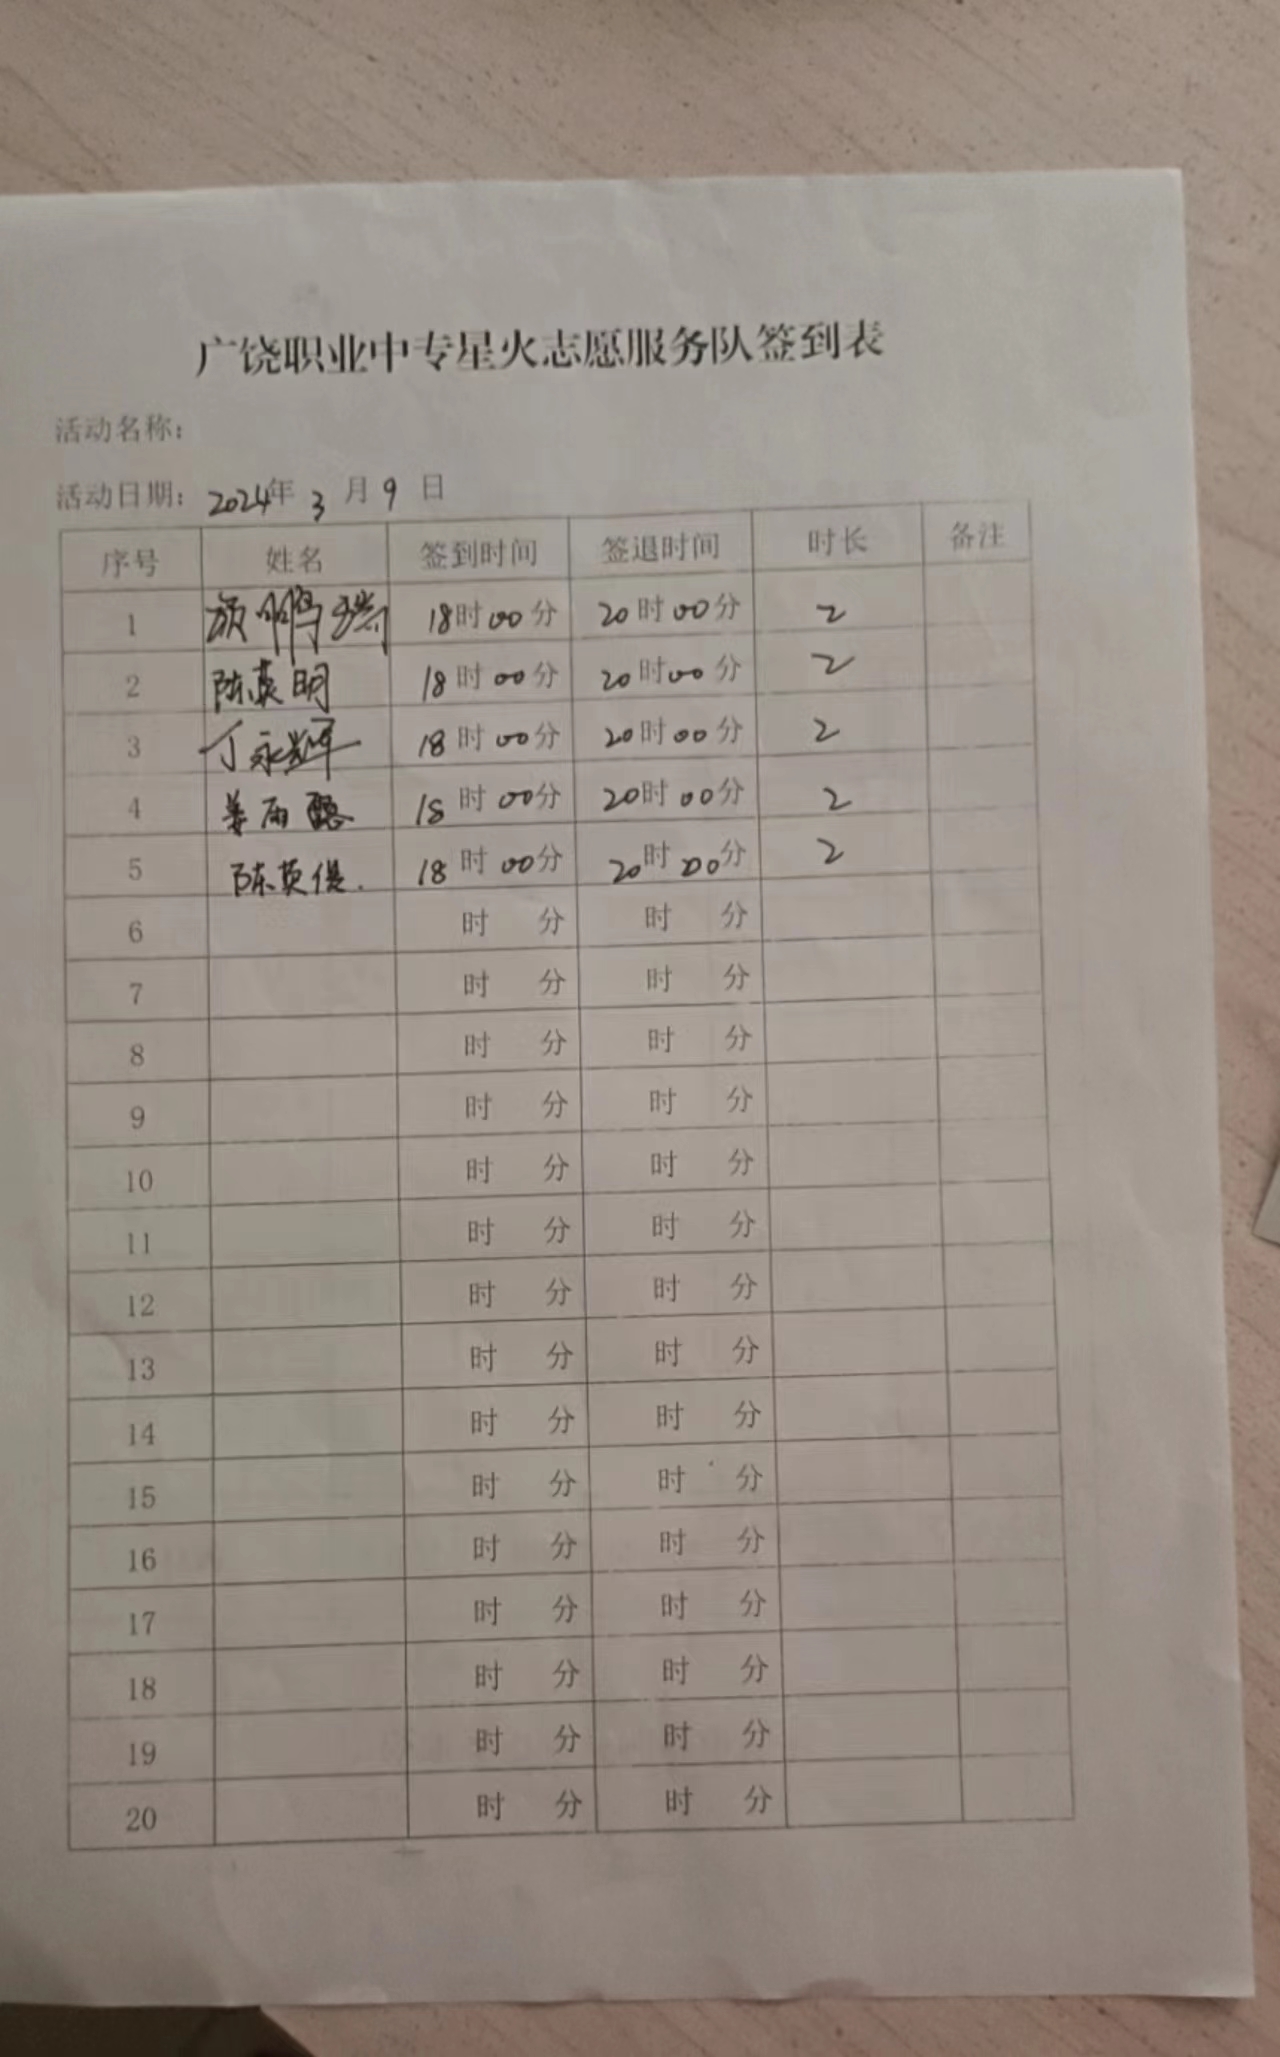 广饶职业中专星火志愿服务队签到表
活动名称：
活动日期：2024年 3 月 9 日
序号 姓名 签到时间 签退时间 时长 备注
1 颜鹏瑞 18时00分 20时00分 2
2 陈英明 18时00分 20时00分 2
3 丁永辉 18时00分 20时00分 2
4 姜雨 18时00分 20时00分 2
5 陈英俊. 18时00分 20时00分 2
6 时 分 时 分
7 时 分 时 分
8 时 分 时 分
9 时 分 时 分
10 时 分 时 分
11 时 分 时 分
12 时 分 时 分
13 时 分 时 分
14 时 分 时 分
15 时 分 时 分
16 时 分 时 分
17 时 分 时 分
18 时 分 时 分
19 时 分 时 分
20 时 分 时 分